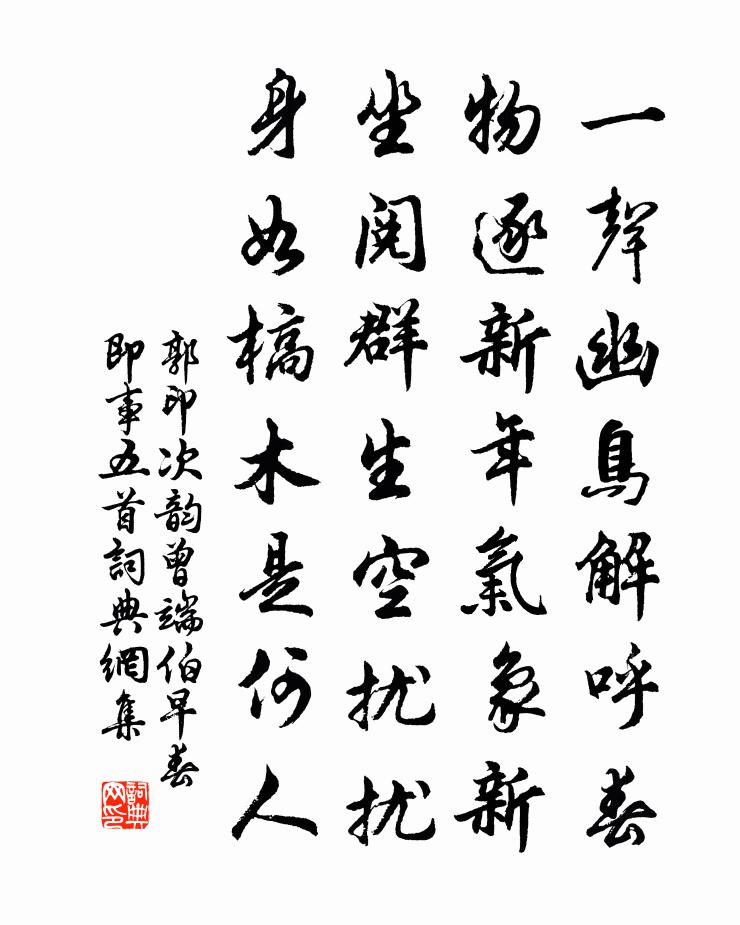 一聲幽鳥解呼春
物逐新年氣象新
坐閱群生空扰扰
身如槁木是何人
郭印次韵曾端伯早春
即事五首詞典網集
詞典网印